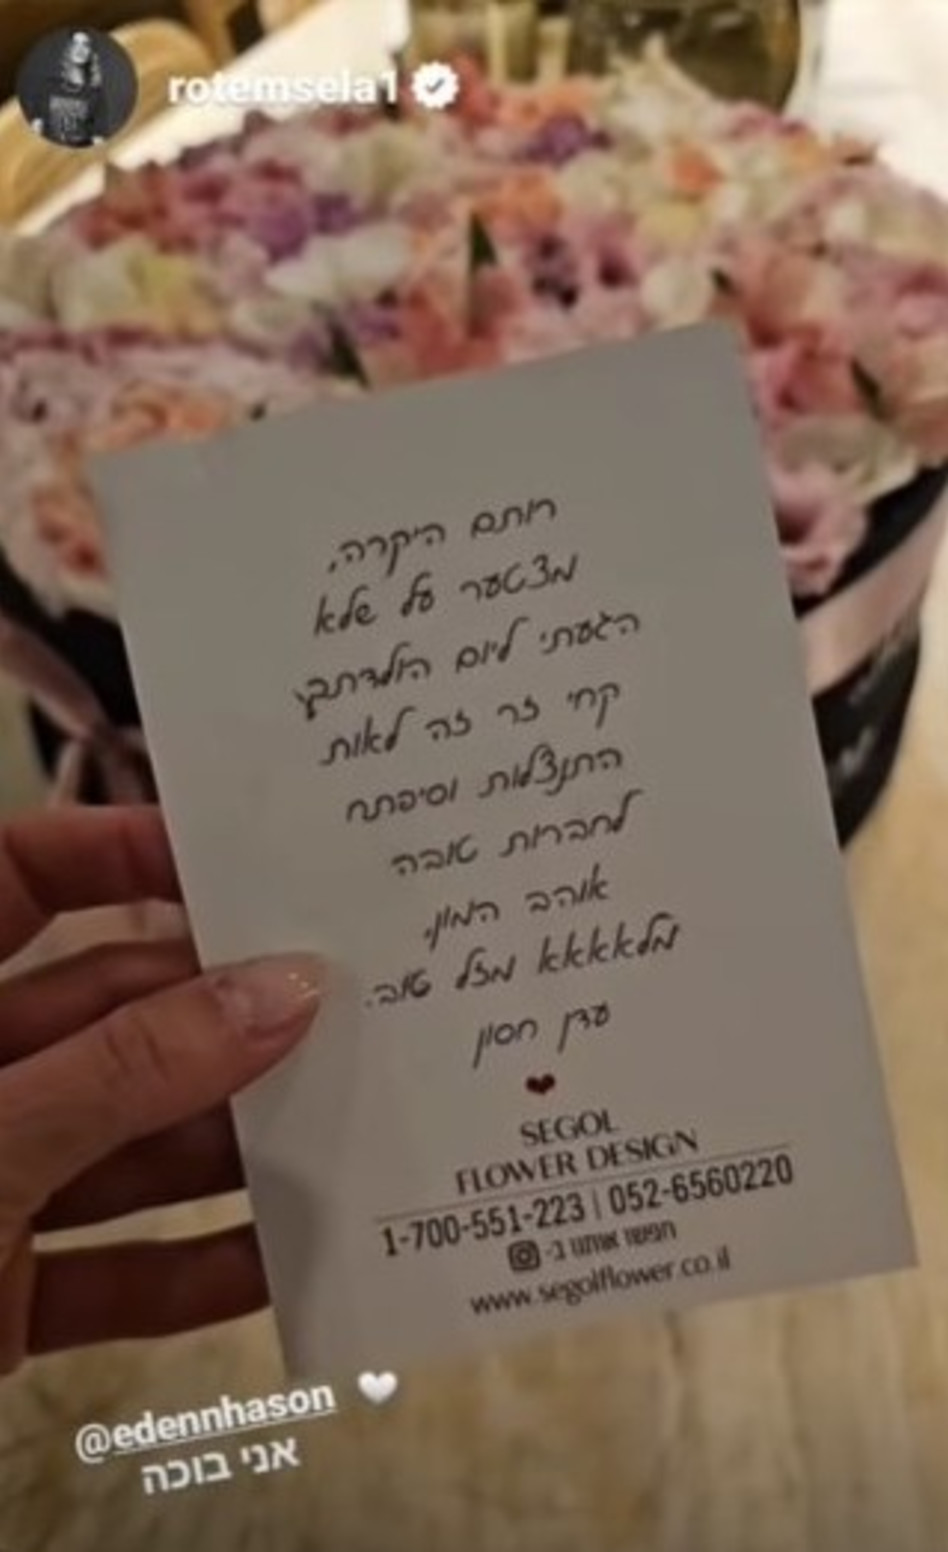 rotemsela1
רותם היקרה,
מצטער על שלא
הגעתי ליום הולדתך,
קחי זר זה לאות
התנצלות וסיפתח
לחברות טובה
אוהב המון,
מלאאאא מזל טוב.
עדן חסון
SEGOL
FLOWER DESIGN
1-700-551-223 | 052-6560220
חפשו אותנו ב-
www.segolflower.co.il
@edennhason
אני בוכה